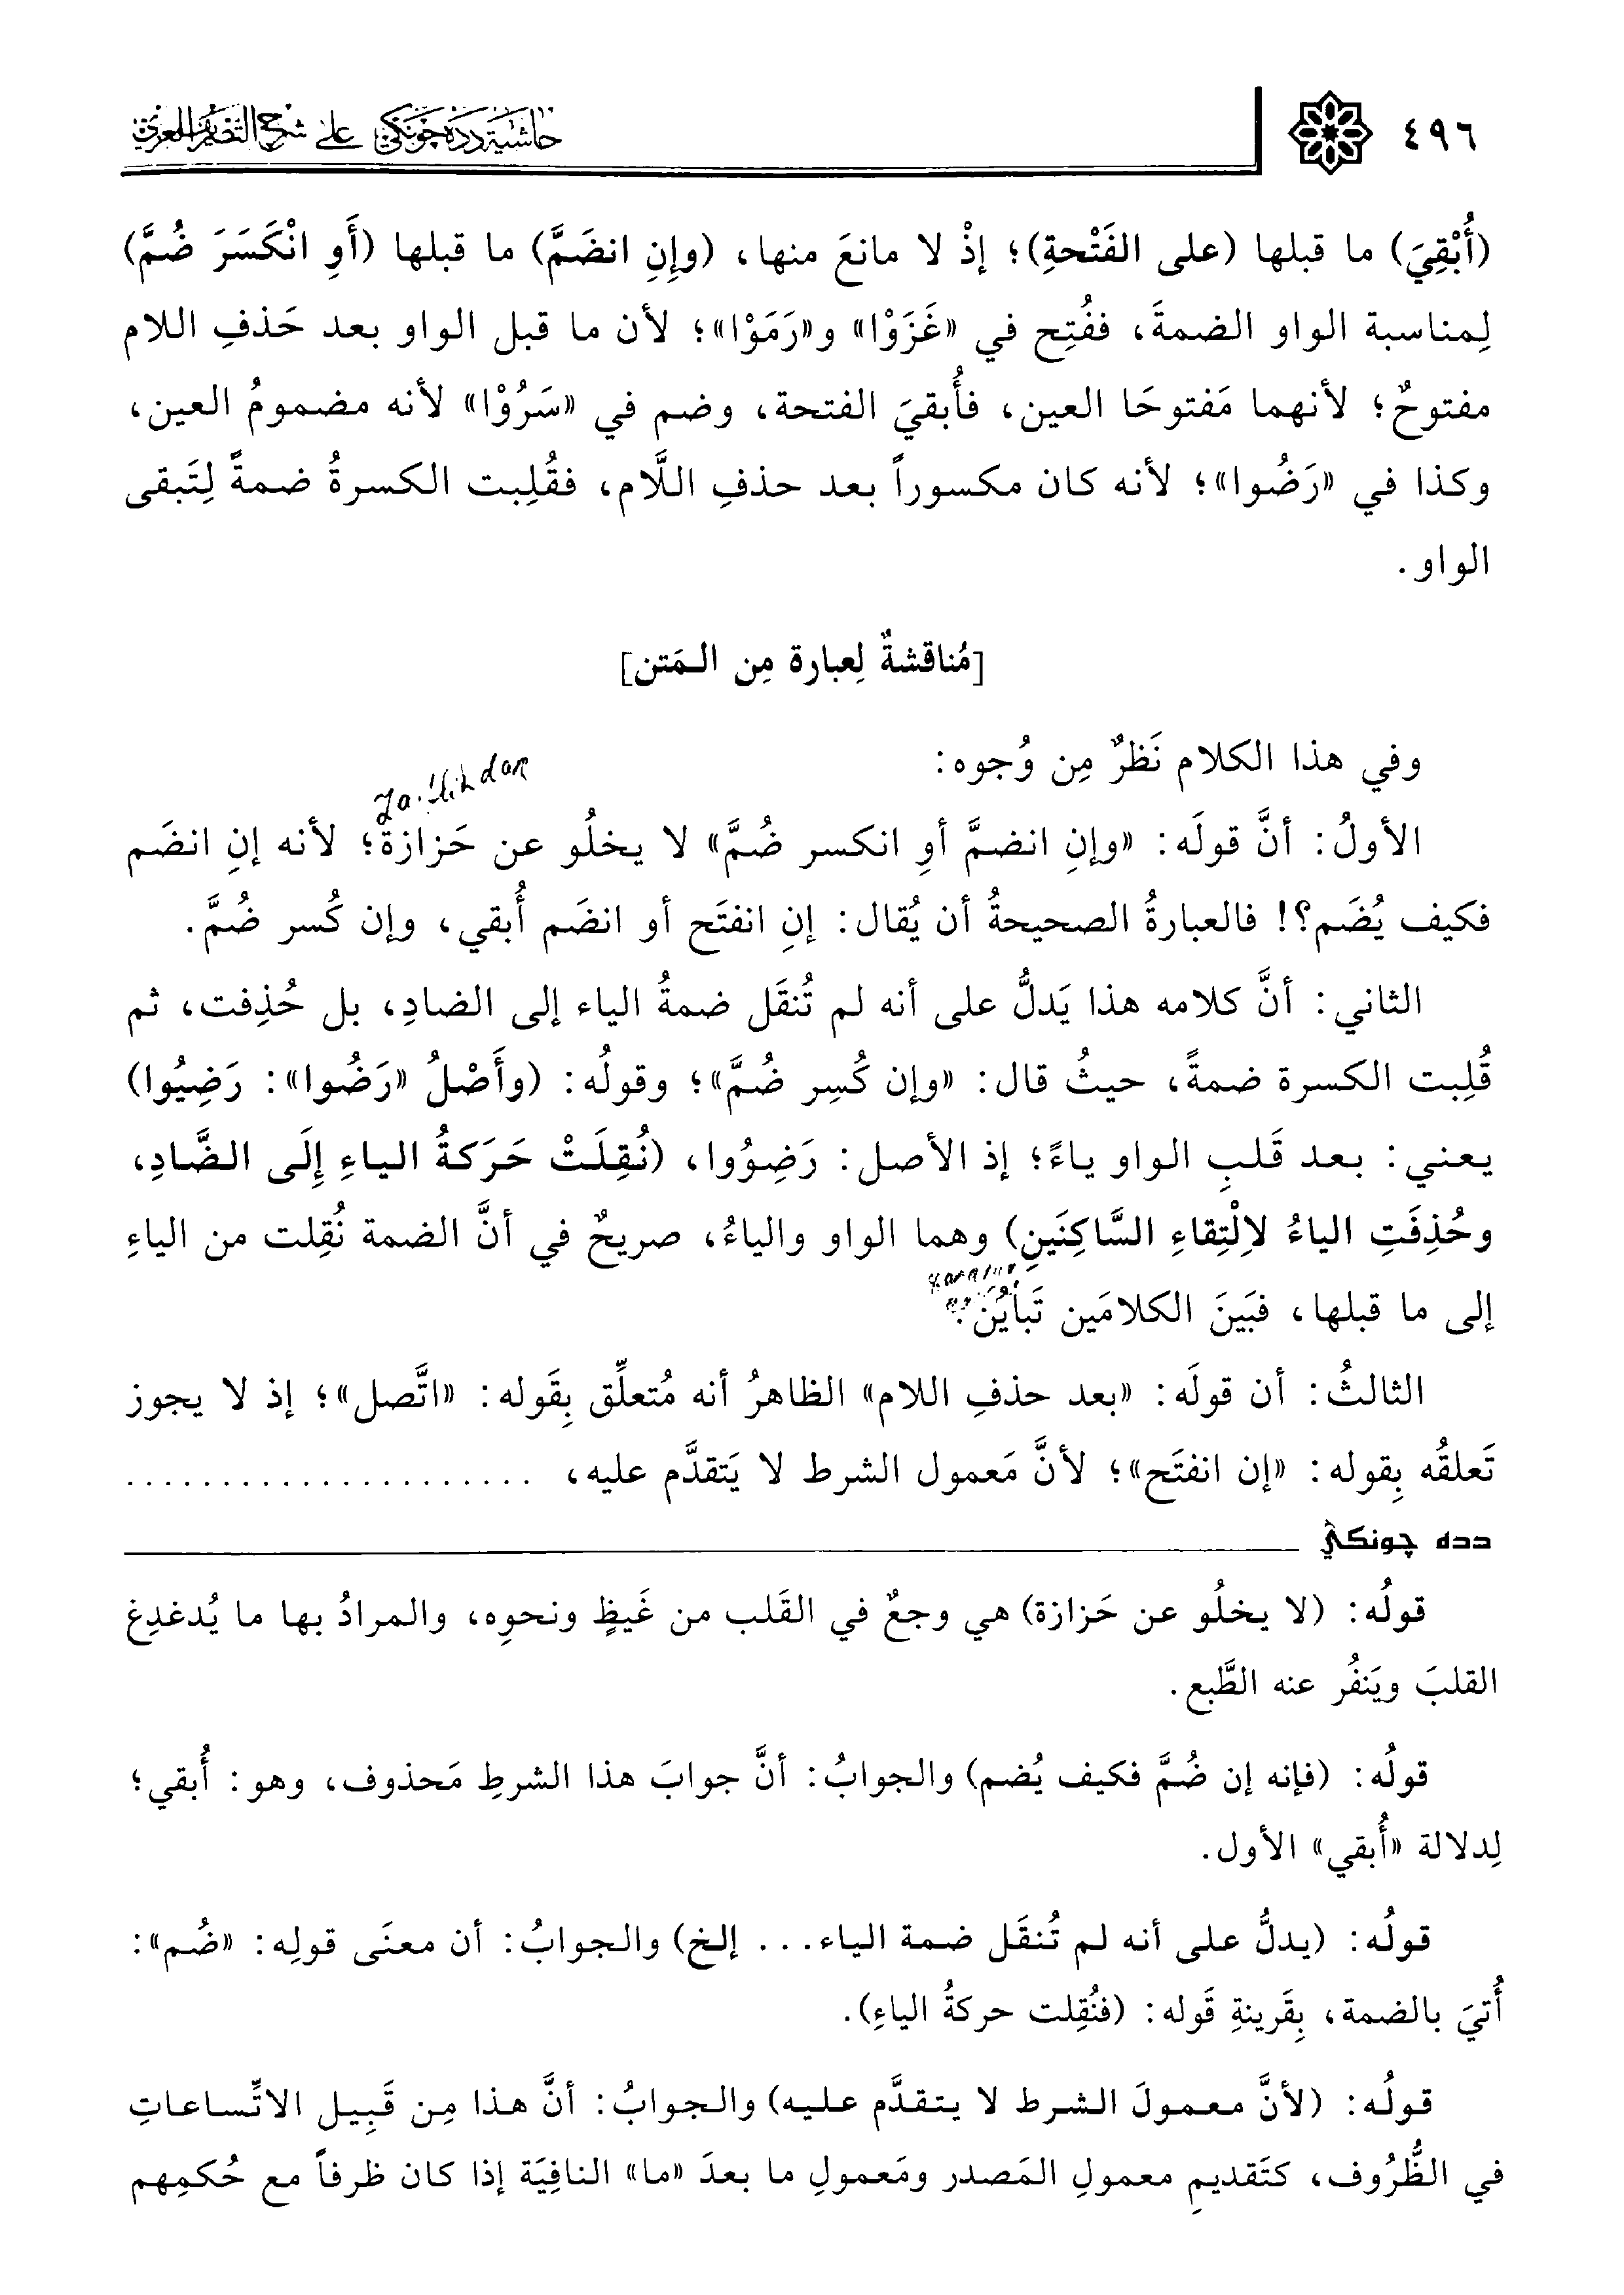 ٤٩٦ حاشية دده جونكي على شرح التصريف العزي
(أُبْقِيَ) ما قبلها (على الفَتْحةِ)؛ إذْ لا مانعَ منها، (وإِنِ انضَمَّ) ما قبلها (أَوِ انْكَسَرَ ضُمَّ)
لِمناسبة الواو الضمةَ، ففُتِح في «غَزَوْا» و«رَمَوْا»؛ لأن ما قبل الواو بعد حَذفِ اللام
مفتوحٌ؛ لأنهما مَفتوحَا العين، فأُبقيَ الفتحة، وضم في «سَرُوْا» لأنه مضمومُ العين،
وكذا في «رَضُوا»؛ لأنه كان مكسوراً بعد حذفِ اللَّام، فقُلِبت الكسرةُ ضمةً لِتَبقى
الواو.
[مُناقشةٌ لِعبارة مِن المَتن]
وفي هذا الكلام نَظرٌ مِن وُجوه:
الأولُ: أنَّ قولَه: «وإنِ انضمَّ أوِ انكسر ضُمَّ» لا يخلُو عن حَزازة؛ لأنه إنِ انضَم
فكيف يُضَم؟! فالعبارةُ الصحيحةُ أن يُقال: إنِ انفتَح أو انضَم أُبقي، وإن كُسر ضُمَّ.
الثاني: أنَّ كلامه هذا يَدلُّ على أنه لم تُنقَل ضمةُ الياء إلى الضادِ، بل حُذِفت، ثم
قُلِبت الكسرة ضمةً، حيثُ قال: «وإن كُسِر ضُمَّ»؛ وقولُه: (وأَصْلُ «رَضُوا»: رَضِيُوا)
يعني: بعد قَلبِ الواو ياءً؛ إذ الأصل: رَضِوُوا، (نُقِلَتْ حَرَكةُ الياءِ إِلَى الضَّادِ،
وحُذِفَتِ الياءُ لاِلْتِقاءِ السَّاكِنَينِ) وهما الواو والياءُ، صريحٌ في أنَّ الضمة نُقِلت من الياءِ
إلى ما قبلها، فبَينَ الكلامَين تَبايُنٌ.
الثالثُ: أن قولَه: «بعد حذفِ اللام» الظاهرُ أنه مُتعلِّق بِقَوله: «اتَّصل»؛ إذ لا يجوز
تَعلقُه بِقوله: «إن انفتَح»؛ لأنَّ مَعمول الشرط لا يَتقدَّم عليه، . . . . . . . . . . . . . . . . . . . . .
دده جونكي
قولُه: (لا يخلُو عن حَزازة) هي وجعٌ في القَلب من غَيظٍ ونحوِه، والمرادُ بها ما يُدغدِغ
القلبَ ويَنفُر عنه الطَّبع.
قولُه: (فإنه إن ضُمَّ فكيف يُضم) والجوابُ: أنَّ جوابَ هذا الشرطِ مَحذوف، وهو: أُبقي؛
لِدلالة «أُبقي» الأول.
قولُه: (يدلُّ على أنه لم تُنقَل ضمة الياء... إلخ) والجوابُ: أن معنَى قولِه: «ضُم»:
أُتيَ بالضمة، بِقَرينةِ قَوله: (فنُقِلت حركةُ الياءِ).
قولُه: (لأنَّ معمولَ الشرط لا يتقدَّم عليه) والجوابُ: أنَّ هذا مِن قَبِيل الاتِّساعاتِ
في الظُّرُوف، كتَقديمِ معمولِ المَصدر ومَعمولِ ما بعدَ «ما» النافِيَة إذا كان ظرفاً مع حُكمِهم